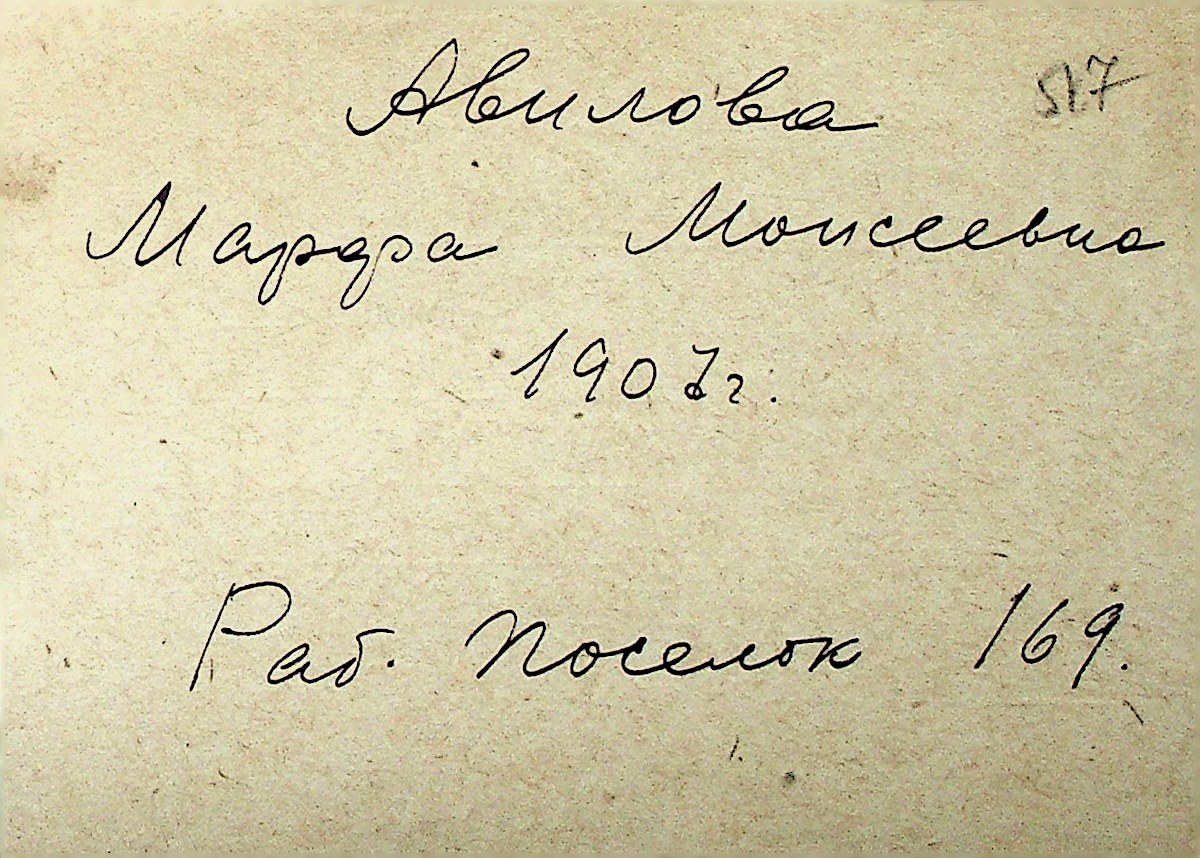 Авилова 51.7
Марфа Моисеевна
1907г.
Раб. поселок 169.